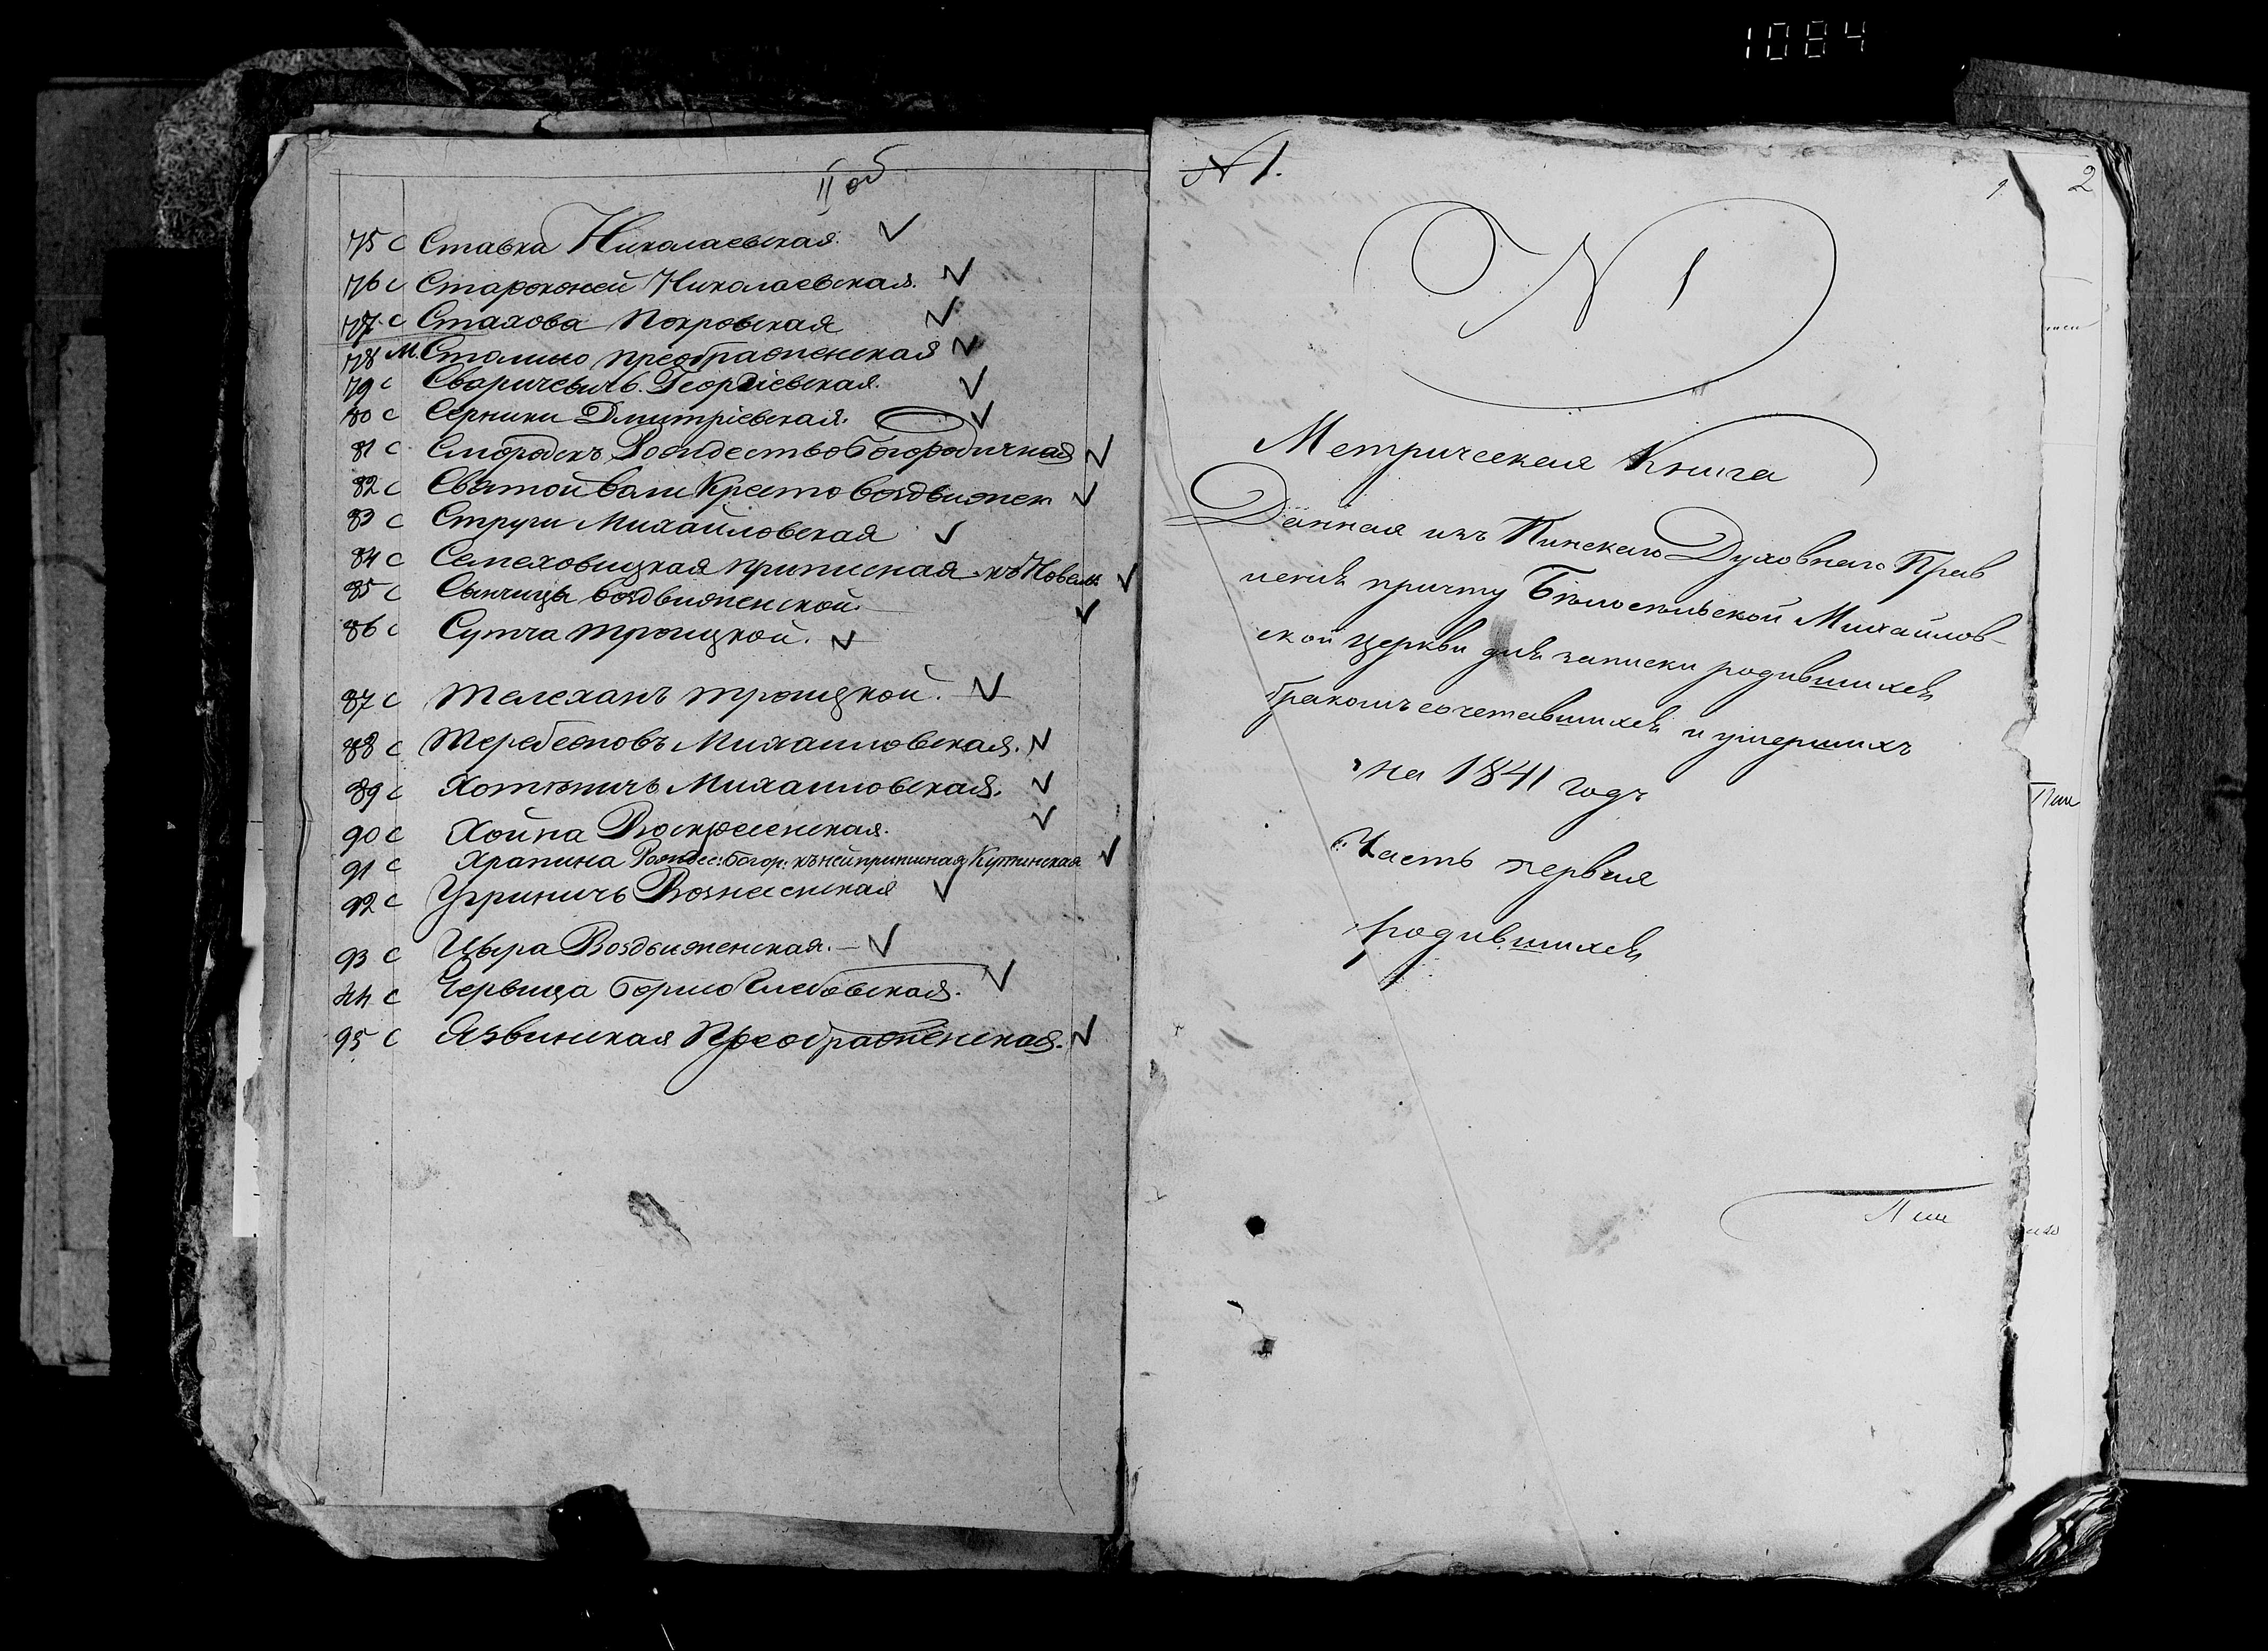 1084
II об
75 с Ставка Николаевская.
76 с Старокожей Николаевская.
77. с Стахова Покровская
78 м. Столино преображенская
79 с Сваричевичь. Георгіевская.
80 с Серники Дмитріевская.
81 с. Смородскъ Рождество Богородичная
82 с Святой воли Кресто воздвижен
83 с Струги Михайловская
84 с Семеховицкая приписная къ Новель
85 с Сынчицы воздвиженской.
86 с Сутча троицкой.
87 с Телеханъ троицкой.
88 с Теребежовъ Михаиловская.
89 с Хотыничь Михаиловская.
90 с Хойна Воскресенская.
91 с Храпина Рождес: Богор: къ ней приписная Кутинская
92 с Угриничь Вознесенская
93 с Цыра Воздвиженская.
94 с Червища Борисо Глебовская.
95 с Язвинская Преображенская.
№ 1.
1
2
№ 1
Метрическая Книга
Данная изъ Пинскаго Духовнаго Прав
ленія причту Бѣлосельской Михайлов-
ской церкви для записки родившихся
бракомъ сочетавшихся и умершихъ
на 1841 годъ
Часть первая
родившихся